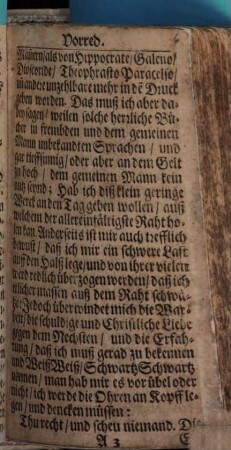 Vorred.
Männern/als von Hippocrate/Galeno/
Dioscoride/Theophrasto Paracelso/
und andere unzehlbare mehr in dē Druck
geben worden. Das muß ich aber da-
bey sagen/weilen solche herzliche Bü-
cher in frembden und dem gemeinen
Mann unbekandten Sprachen/und
gar tieffsinnig/oder aber an dem Gelt
zu hoch/dem gemeinen Mann kein
nutz seynd; Hab ich diß klein geringe
Werck an den Tag geben wollen/auß
welchem der allereinfältigste Raht ho-
len kan/Anderseits ist mir auch trefflich
bewust/daß ich mir ein schwere Last
auff den Halß lege/und von ihrer vielen
werd redlich überzogen werden/daß ich
solcher massen auß dem Raht schwä-
tze: Jedoch überwindet mich die War-
heit/die schuldige und Christliche Liebe
gegen dem Nechsten/und die Erfah-
rung/daß ich muß gerad zu bekennen
und Weiß Weiß/Schwartz Schwartz
nennen/man hab mir es vor übel oder
nicht/ich werde die Ohren an Kopff le-
gen/und dencken müssen:
Thu recht/und scheu niemand. Die
A 3